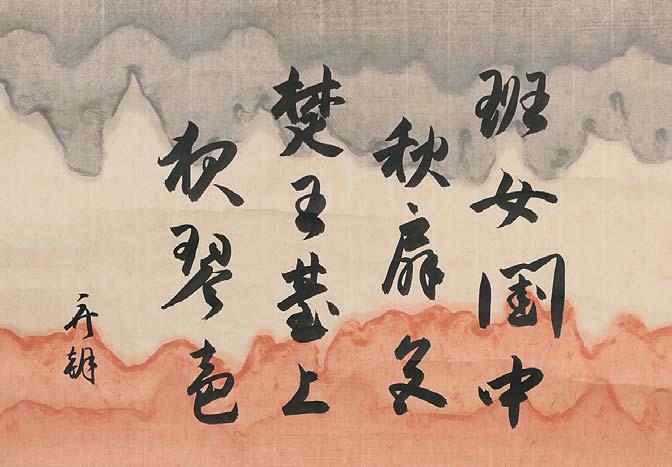 班女閨中
秋扇色
楚王臺上
夜琴声